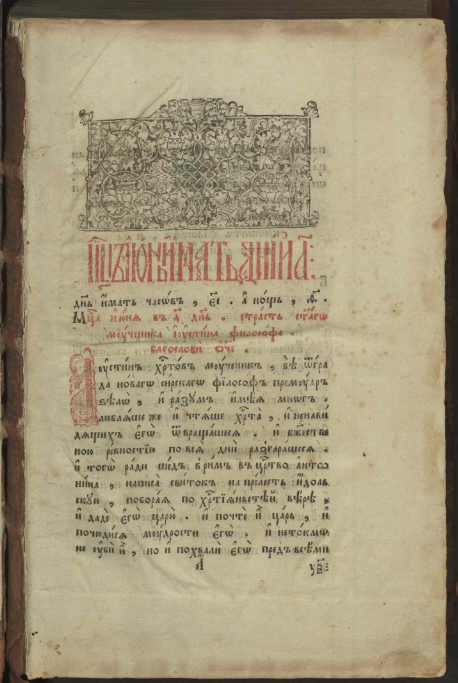 мцъ їюнь имать днии л҃:
днь и҆мать часѡвъ , є҃і . а҆ нощь , ѳ҃ .
Мцⷭ҇а і҆ю́нѧ въ а҃ днь . стрⷭ҇ть ст҃агѡ
моученика і҆оустина філософа .
благослови ѻ҆́ч҃е .
І҆оустинъ хрⷭ҇товъ моученикъ , бѣ ѿ гра
да новагѡ сирскагѡ філософъ премоудръ
ѕѣлѡ , и҆ разумъ и҆мѣѧ многъ .
люблѧше же и҆ чтѧше хрⷭ҇та , и҆ ненави
дѧщихъ є҆гѡ̀ ѿвращашесѧ . и҆ бжⷭ҇тве
ною ревностїю по всѧ дни разгарашесѧ .
и҆ того̀ ради шедъ в̾ римъ в̾ црⷭ҇тво антѡ
нина , написа свитокъ на прелесть и҆дол
скую , поборая по хрⷭ҇тїянстѣй вѣрѣ ,
и҆ даде є҆го̀ царю . и҆ почте и҆̀ царь , и҆
почюдисѧ моудрости є҆гѡ̀ . и҆ нетокмѡ
не оуби и҆̀ , но и҆ похвали є҆го̀ предъ всѣми
а҃